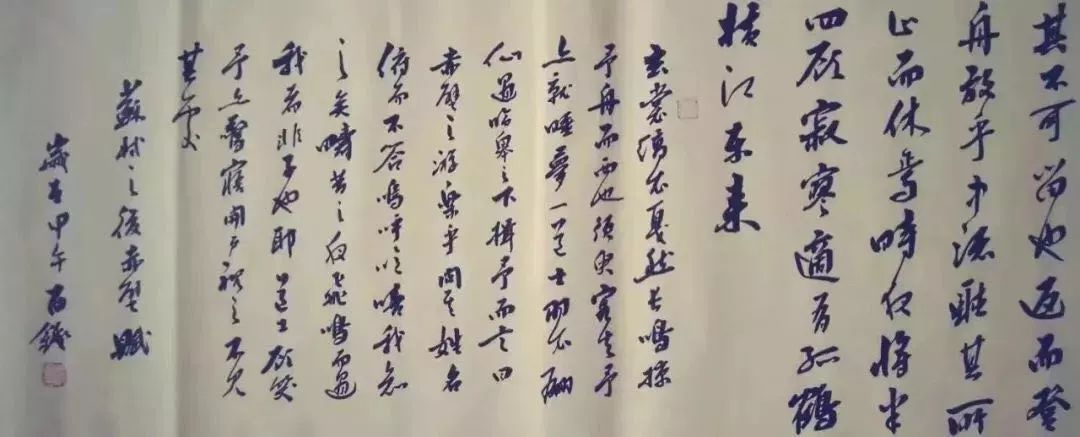 其不可留也返而登
舟放乎中流聽其所
止而休焉時夜將半
四顧寂寥適有孤鶴
橫江東來
玄裳縞衣戛然長鳴掠
予舟而西也須臾客去予
亦就睡夢一道士羽衣翩
仙過臨皋之下揖予而言曰
赤壁之游樂乎問其姓名
俯而不答嗚呼噫嘻我知
之矣疇昔之夜飛鳴而過
我者非子也耶道士顧笑
予亦驚寤開戶視之不見
其處
蘇軾之後赤壁賦
歲在甲午